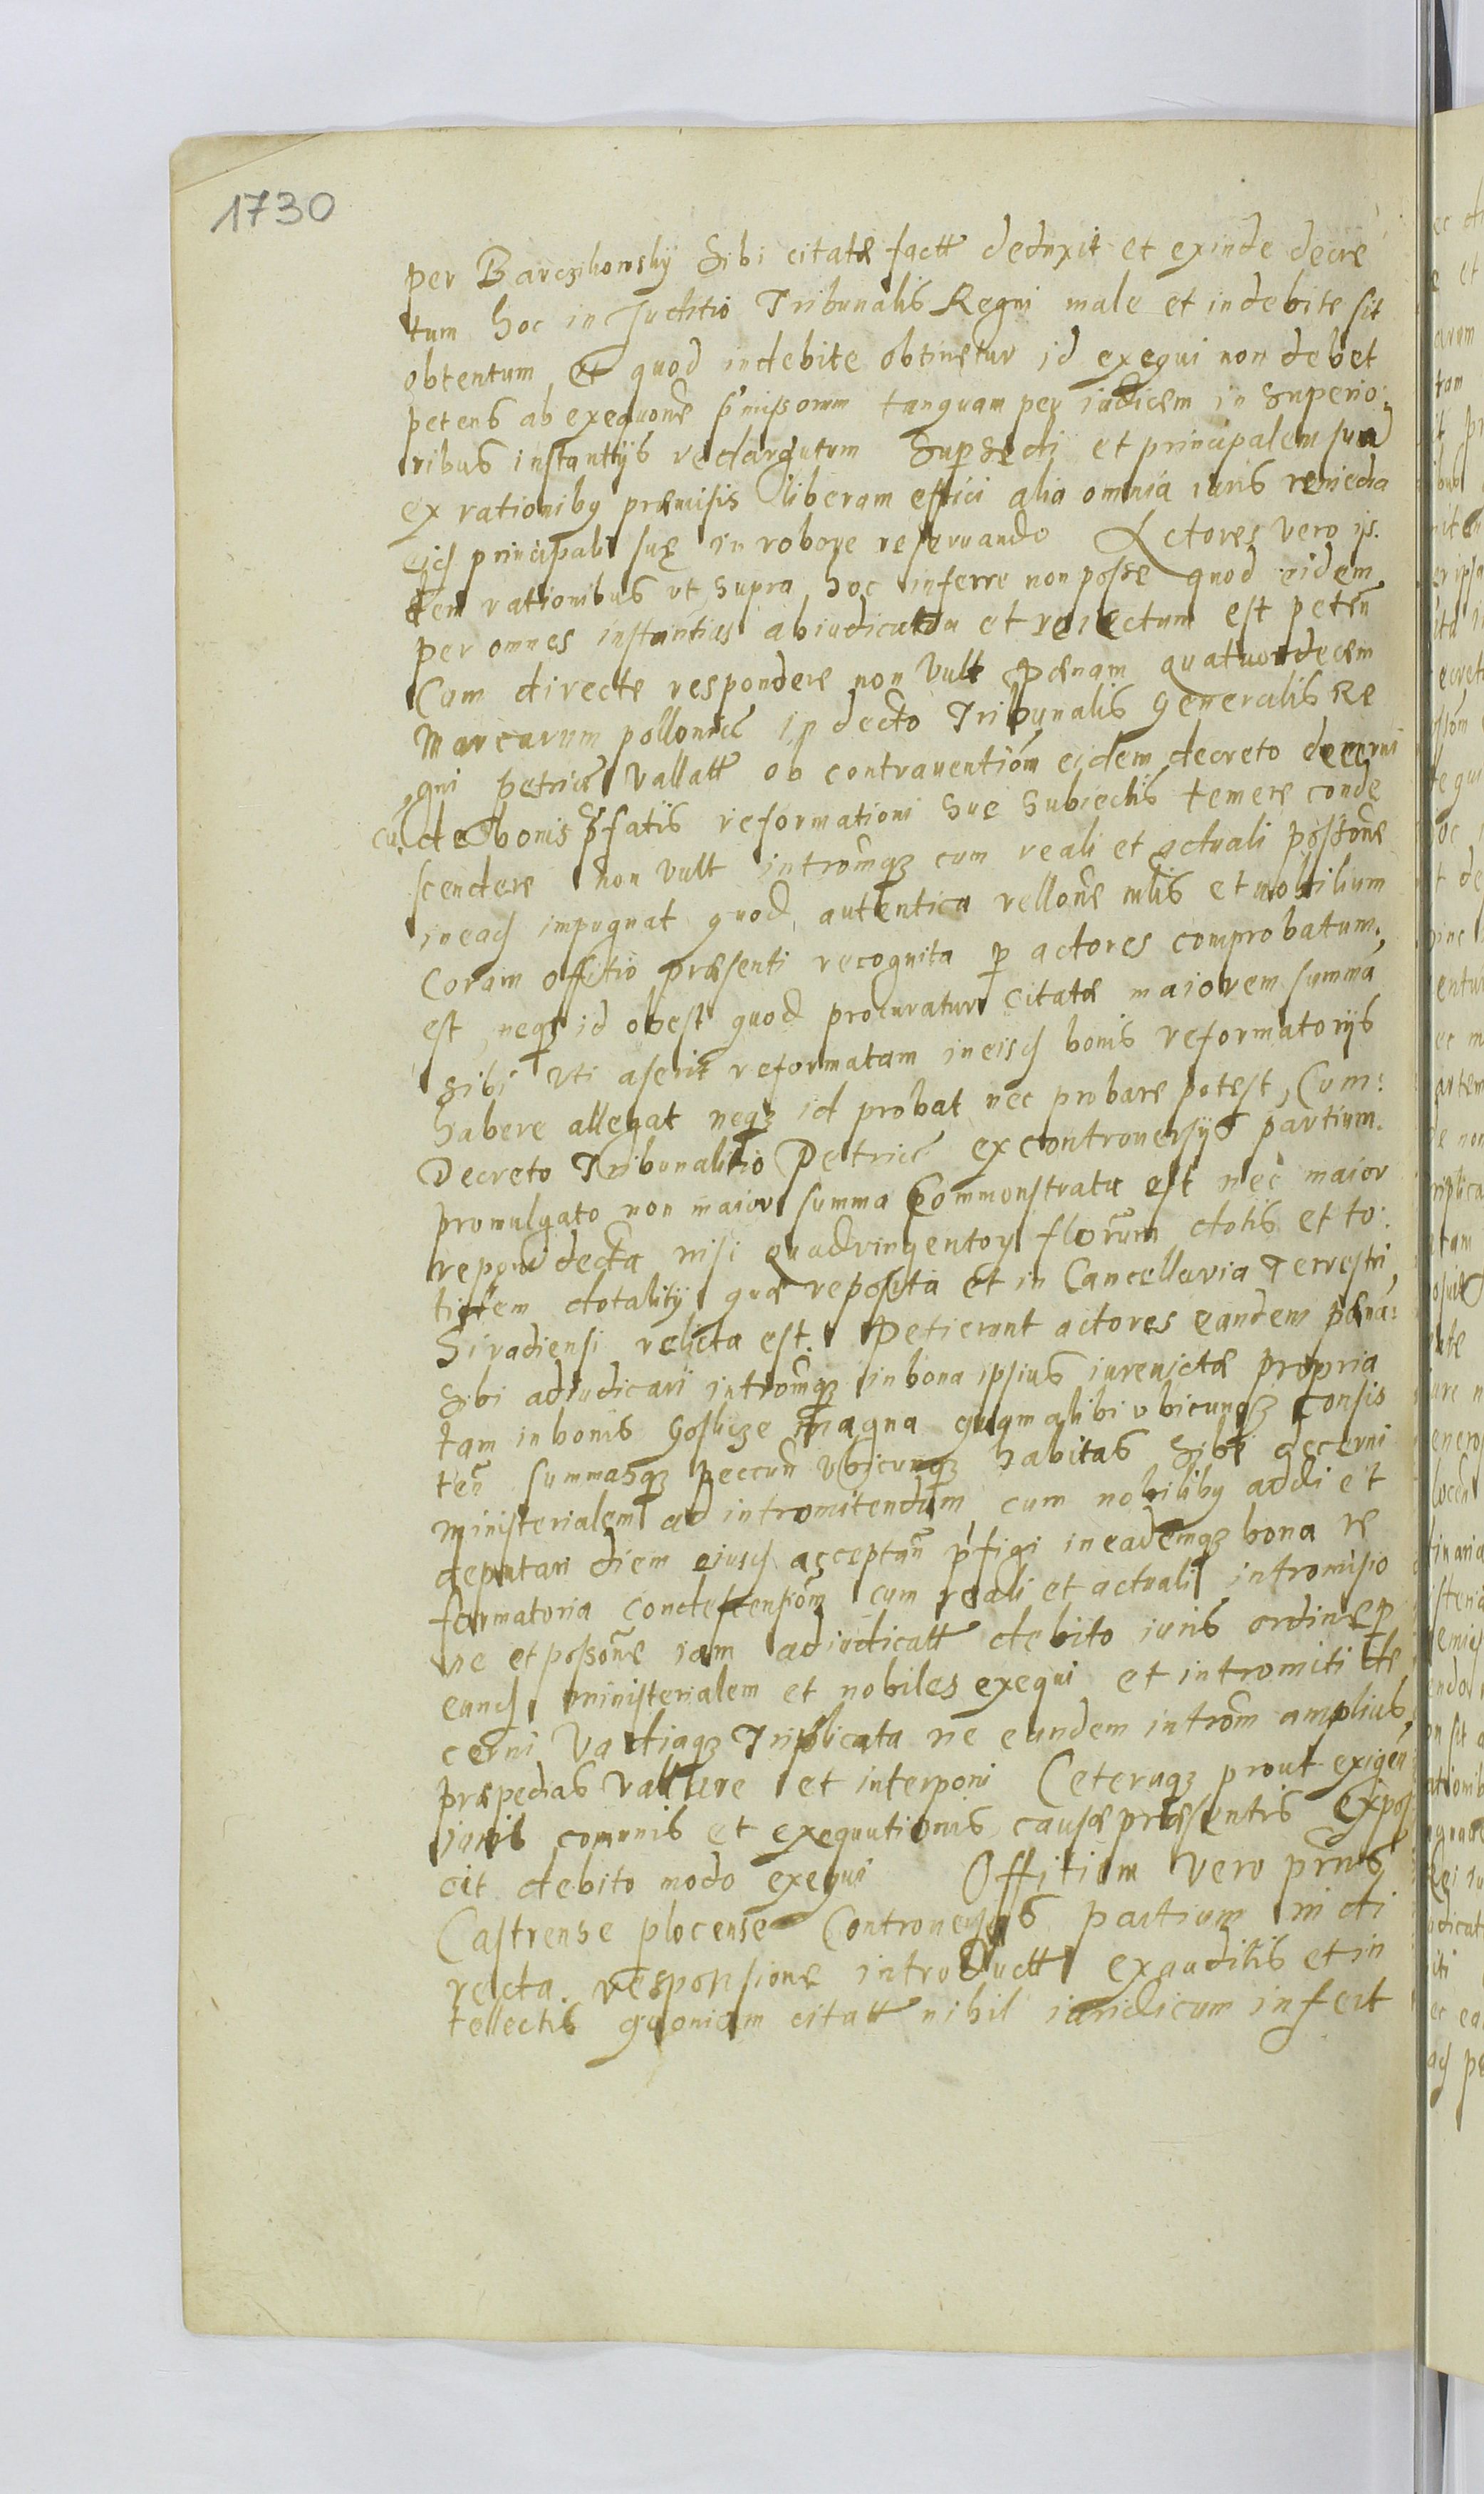 1730
per Barczikowsky Sibi citatæ factt deduxit et exinde decre
tum hoc in Juditio Tribunalis Regni male et indebite sit
obtentum et quod indebite obtinetur id exequi non debet
petens ab exequone p̃missorum tanquam per iudicem in Superio-
ribus instantijs redargutum Supsedi et principalem suã
ex rationibꝯ præmisis liberam effici alia omnia iuris remedia
principali suę in robore reseruando Actores vero is.
dem rationibus ut supra hoc inferre non posse quod eidem
per omnes instantias abiudicatum et reiectum est petñ
Cum directe respondere non vult pænam quatuordecem
Marcarum pollonic̃ in decto Tribunalis Generalis Re
gni petric̃ vallatt ob contrauentiõm eidem decreto decerni
cũ de bonis p̃fatis reformationi Suę Subiectis temere conde
scendere non vult intromq̃ȝ cum reali et actuali possõne
in eadȝ impugnat quod autentica rellone mlis et nobilium
Coram offitio præsenti recognita ꝑ actores comprobatum
est, neqȝ id obest quod procuratur citatæ maiorem summã
Sibi uti aserit reformatam in eisdȝ bonis reformatorijs
habere allegat neqȝ id probat nec probare potest, Cum
Decreto Tribunalitio Petric̃ ex controuersijs partium
promulgato non maior summa Commonstrata est nec maior
reponi decta nisi quadringentoȝ florum dotis et to
tidem dotalitij quæ reposita et in Cancellaria Terrestri
Siradiensi relicta est. Petierunt actores eandem pænã
Sibi adiudicari intromq̃ȝ in bona ipsius iureuictæ propria
tam in bonis Goslicze magna quam alibi ubicunqȝ Consis
teñ summasqȝ peccuñ ubicunqȝ habitas Sibi decerni
ministerialem ad intromitendum cum nobilibꝯ addi et
deputari diem eiusdȝ acceptañ p̃figi in eademqȝ bona re
formatoria condescensiõm cum reali et actuali intromisio
ne et possõne iam adiudicatt debito iuris ordine ꝑ
eundȝ ministerialem et nobiles exequi et intromiti de
cerni Vadiaqȝ Triplicata ne eundem introm̃ amplius
præpedias vallare et interponi Ceteruqȝ prout exigen
iuris comunis et exequutionis causæ præsentis Expos
cit debito modo exequi Offitium vero prns
Castrense plocense Controuersijs partium in di
recta responsione introductt exauditis et in
tellectis quoniam citatt nihil iuridicum infert